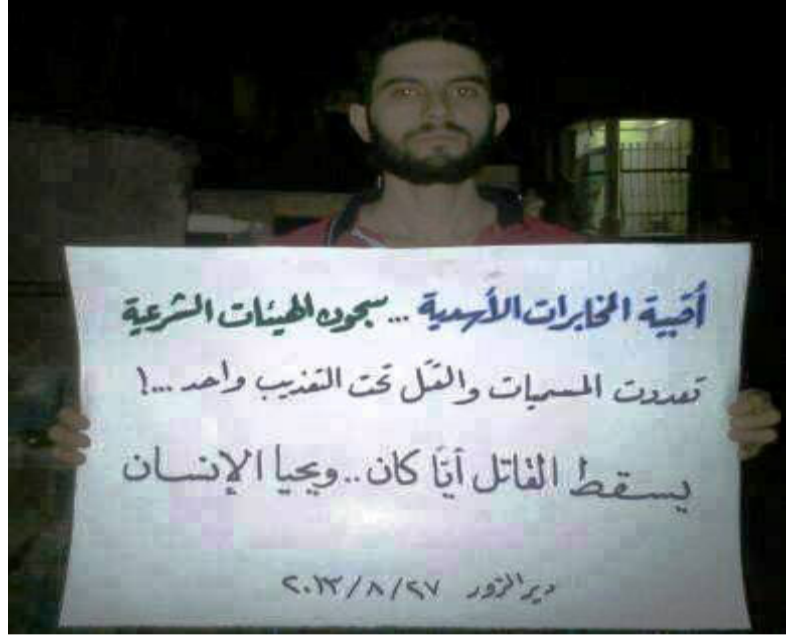 أقبية المخابرات الأسدية ... سجون الهيئات الشرعية
تعددت المسميات والقتل تحت التعذيب واحد ...!
يسقط القاتل أيًا كان .. ويحيا الإنسان
دير الزور ٢٠١٣/٨/٢٧